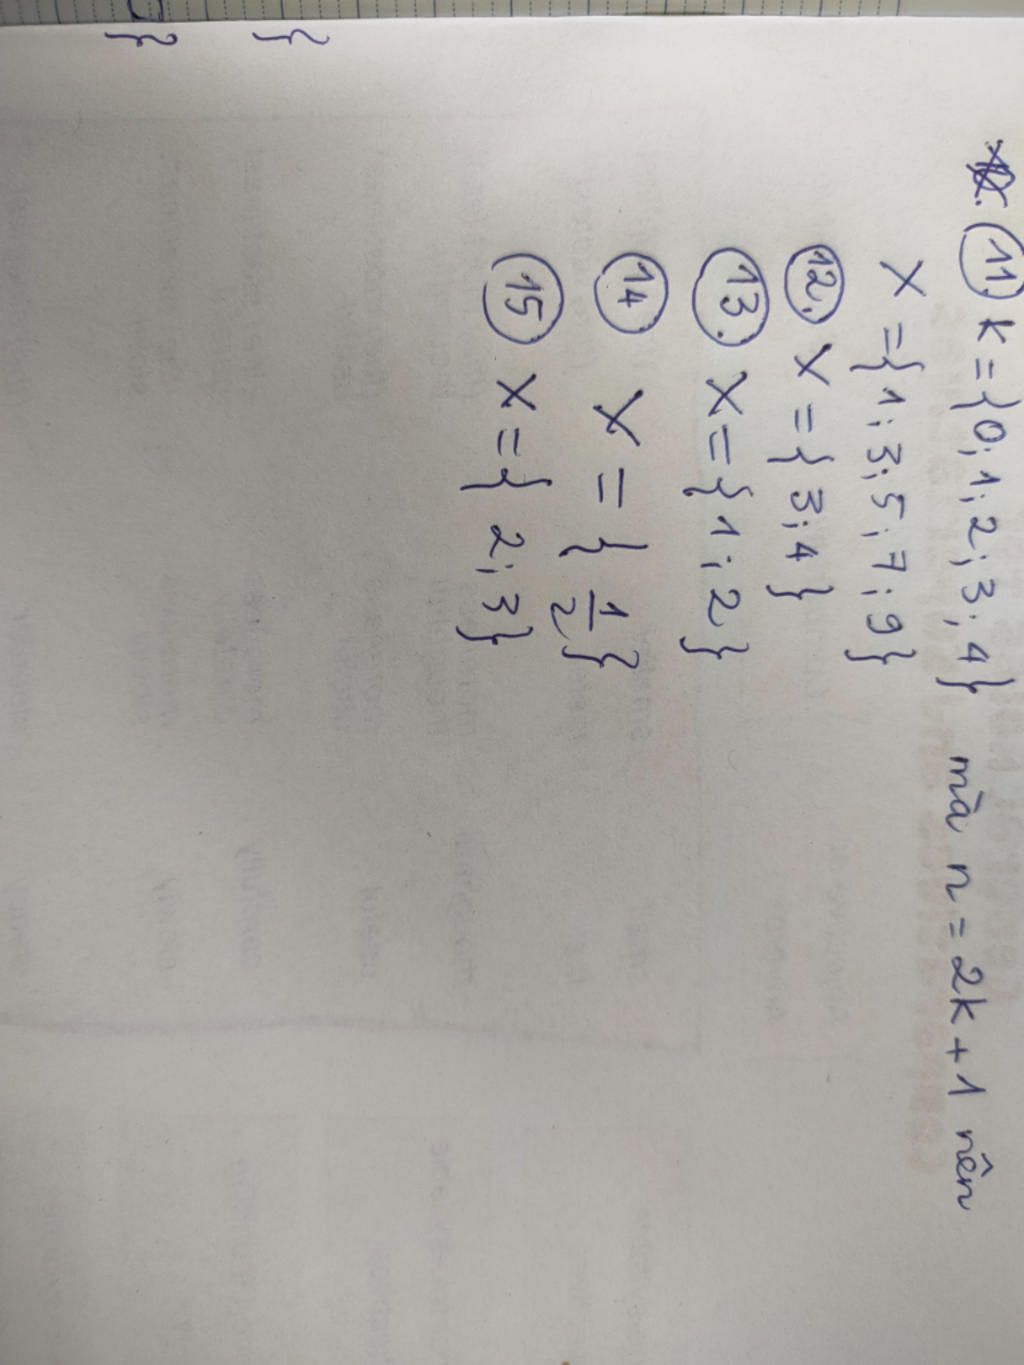 11. K = {0; 1; 2; 3; 4} mà n = 2k + 1 nên
X = {1; 3; 5; 7; 9}
12. X = {3; 4}
13. X = {1; 2}
14 X = {1/2}
15 X = {2; 3}